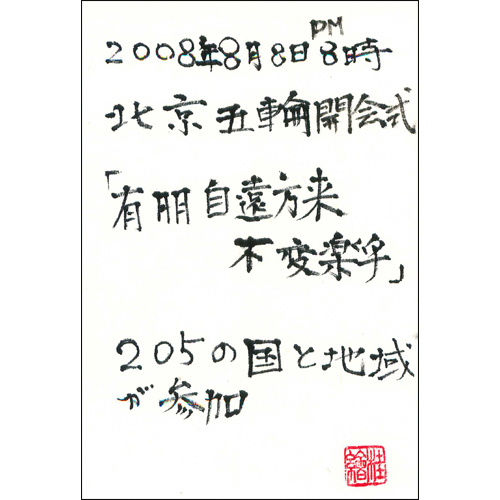 2008年8月8日PM8時
北京五輪開会式
「有朋自遠方来
不変楽孚」
205の国と地域
が参加